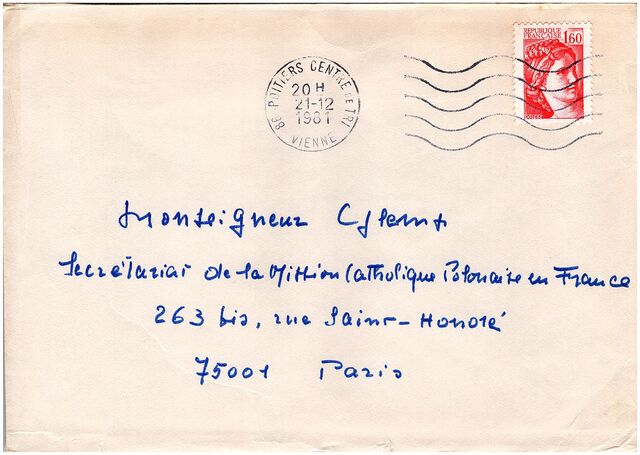 REPUBLIQUE
FRANÇAISE 1,60
86 POITIERS CENTRE DE TRI
20 H
21-12
1981
VIENNE
Monseigneur
Secrétariat de la Mission Catholique Polonaise en France
263 bis, rue Saint-Honoré
75001 Paris